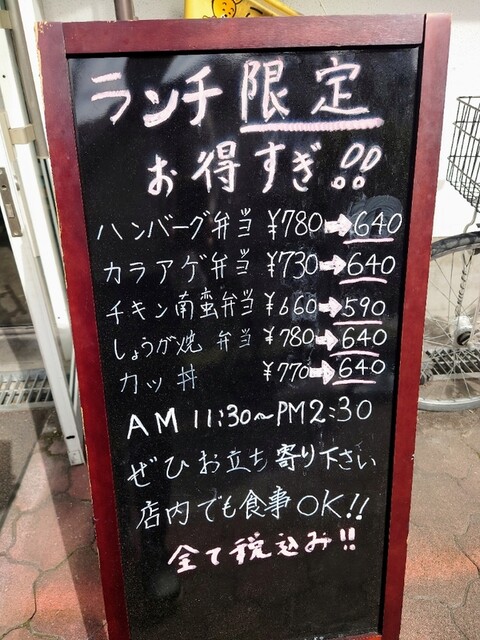 ランチ限定
お得すぎ!!
ハンバーグ弁当 ¥780➡640
カラアゲ弁当 ¥730➡640
チキン南蛮弁当 ¥660➡590
しょうが焼 弁当 ¥780➡640
カツ丼 ¥770➡640
AM 11:30~PM2:30
ぜひお立ち寄り下さい
店内でも食事OK!!
全て税込み!!